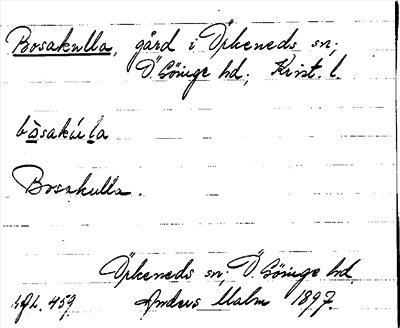 Bosakulla, gård i Örkeneds sn;
Ö. Göinge hd; Krist. l.
bòsakúla
Bosakulla.
Örkeneds sn; Ö. Göinge hd
Anders Malm 1897.
457